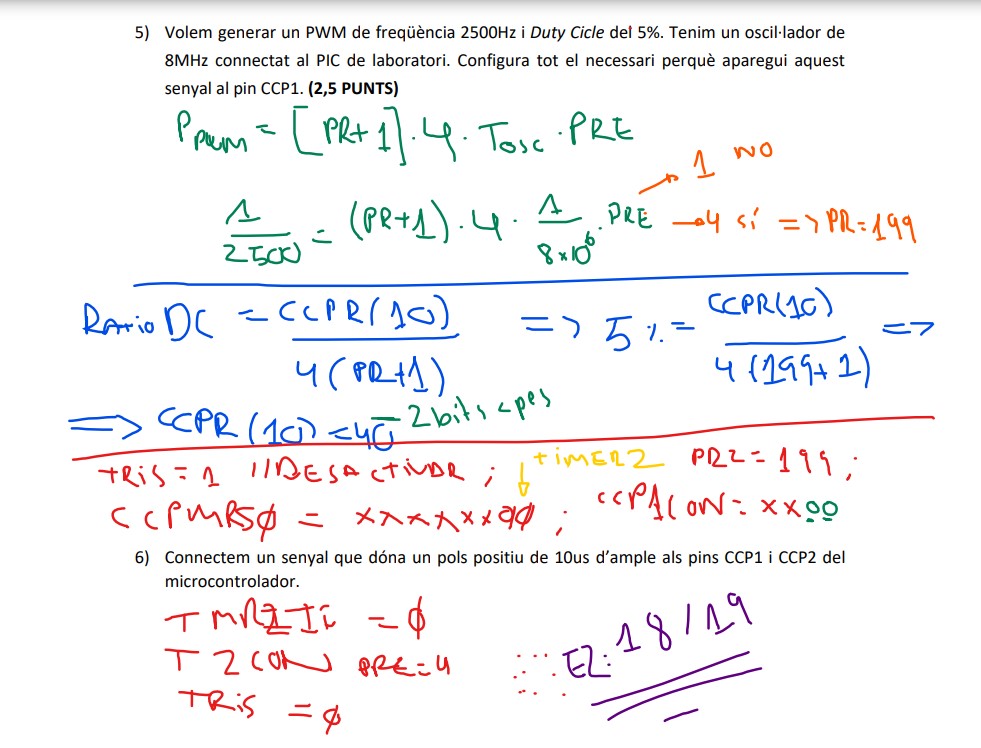 5) Volem generar un PWM de freqüència 2500Hz i Duty Cicle del 5%. Tenim un oscil·lador de
8MHz connectat al PIC de laboratori. Configura tot el necessari perquè aparegui aquest
senyal al pin CCP1. (2,5 PUNTS)
PPWM = [PR+1]·4·Tosc·PRE
1 NO
1/2500 = (PR+1)·4·1/8x10^6·PRE →4 sí => PR=199
Ratio DC = CCPR(10)/4(PR+1) => 5% = CCPR(10)/4(199+1) =>
=> CCPR(10) = 40 2 bits < pes
TRIS = 1 //DESACTIVAR ; TIMER2 PR2 = 199 ;
CCPMRS0 = xxxxxx00 ; CCP1CON = xx00
6) Connectem un senyal que dóna un pols positiu de 10us d'ample als pins CCP1 i CCP2 del
microcontrolador.
= 0
T2CON PRE=4
TRIS = 0
E2: 18/19